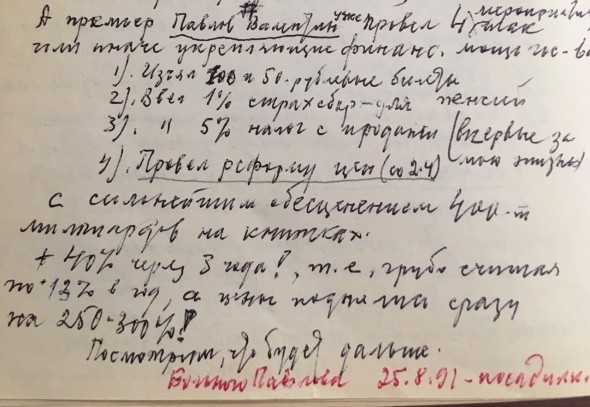 А премьер Павлов Валентин уже провел 4 мероприятия
так или иначе укрепляющие финанс. мощь гос-ва
1). Изъял 100 и 50-рублевые билеты
2). Ввел 1% страхсбор - для пенсий
3). " 5% налог с продажи (впервые за
4). Провел реформу цен (со 2.4) мою жизнь)
с сильнейшим обесценением 400-т
миллиардов на книжках.
+ 40% через 3 года!, т.е, грубо считая
по 13% в год, а цены подняли сразу
на 250-300%!
Посмотрим, что будет дальше.
Павлова 25.8.91 - посадили.